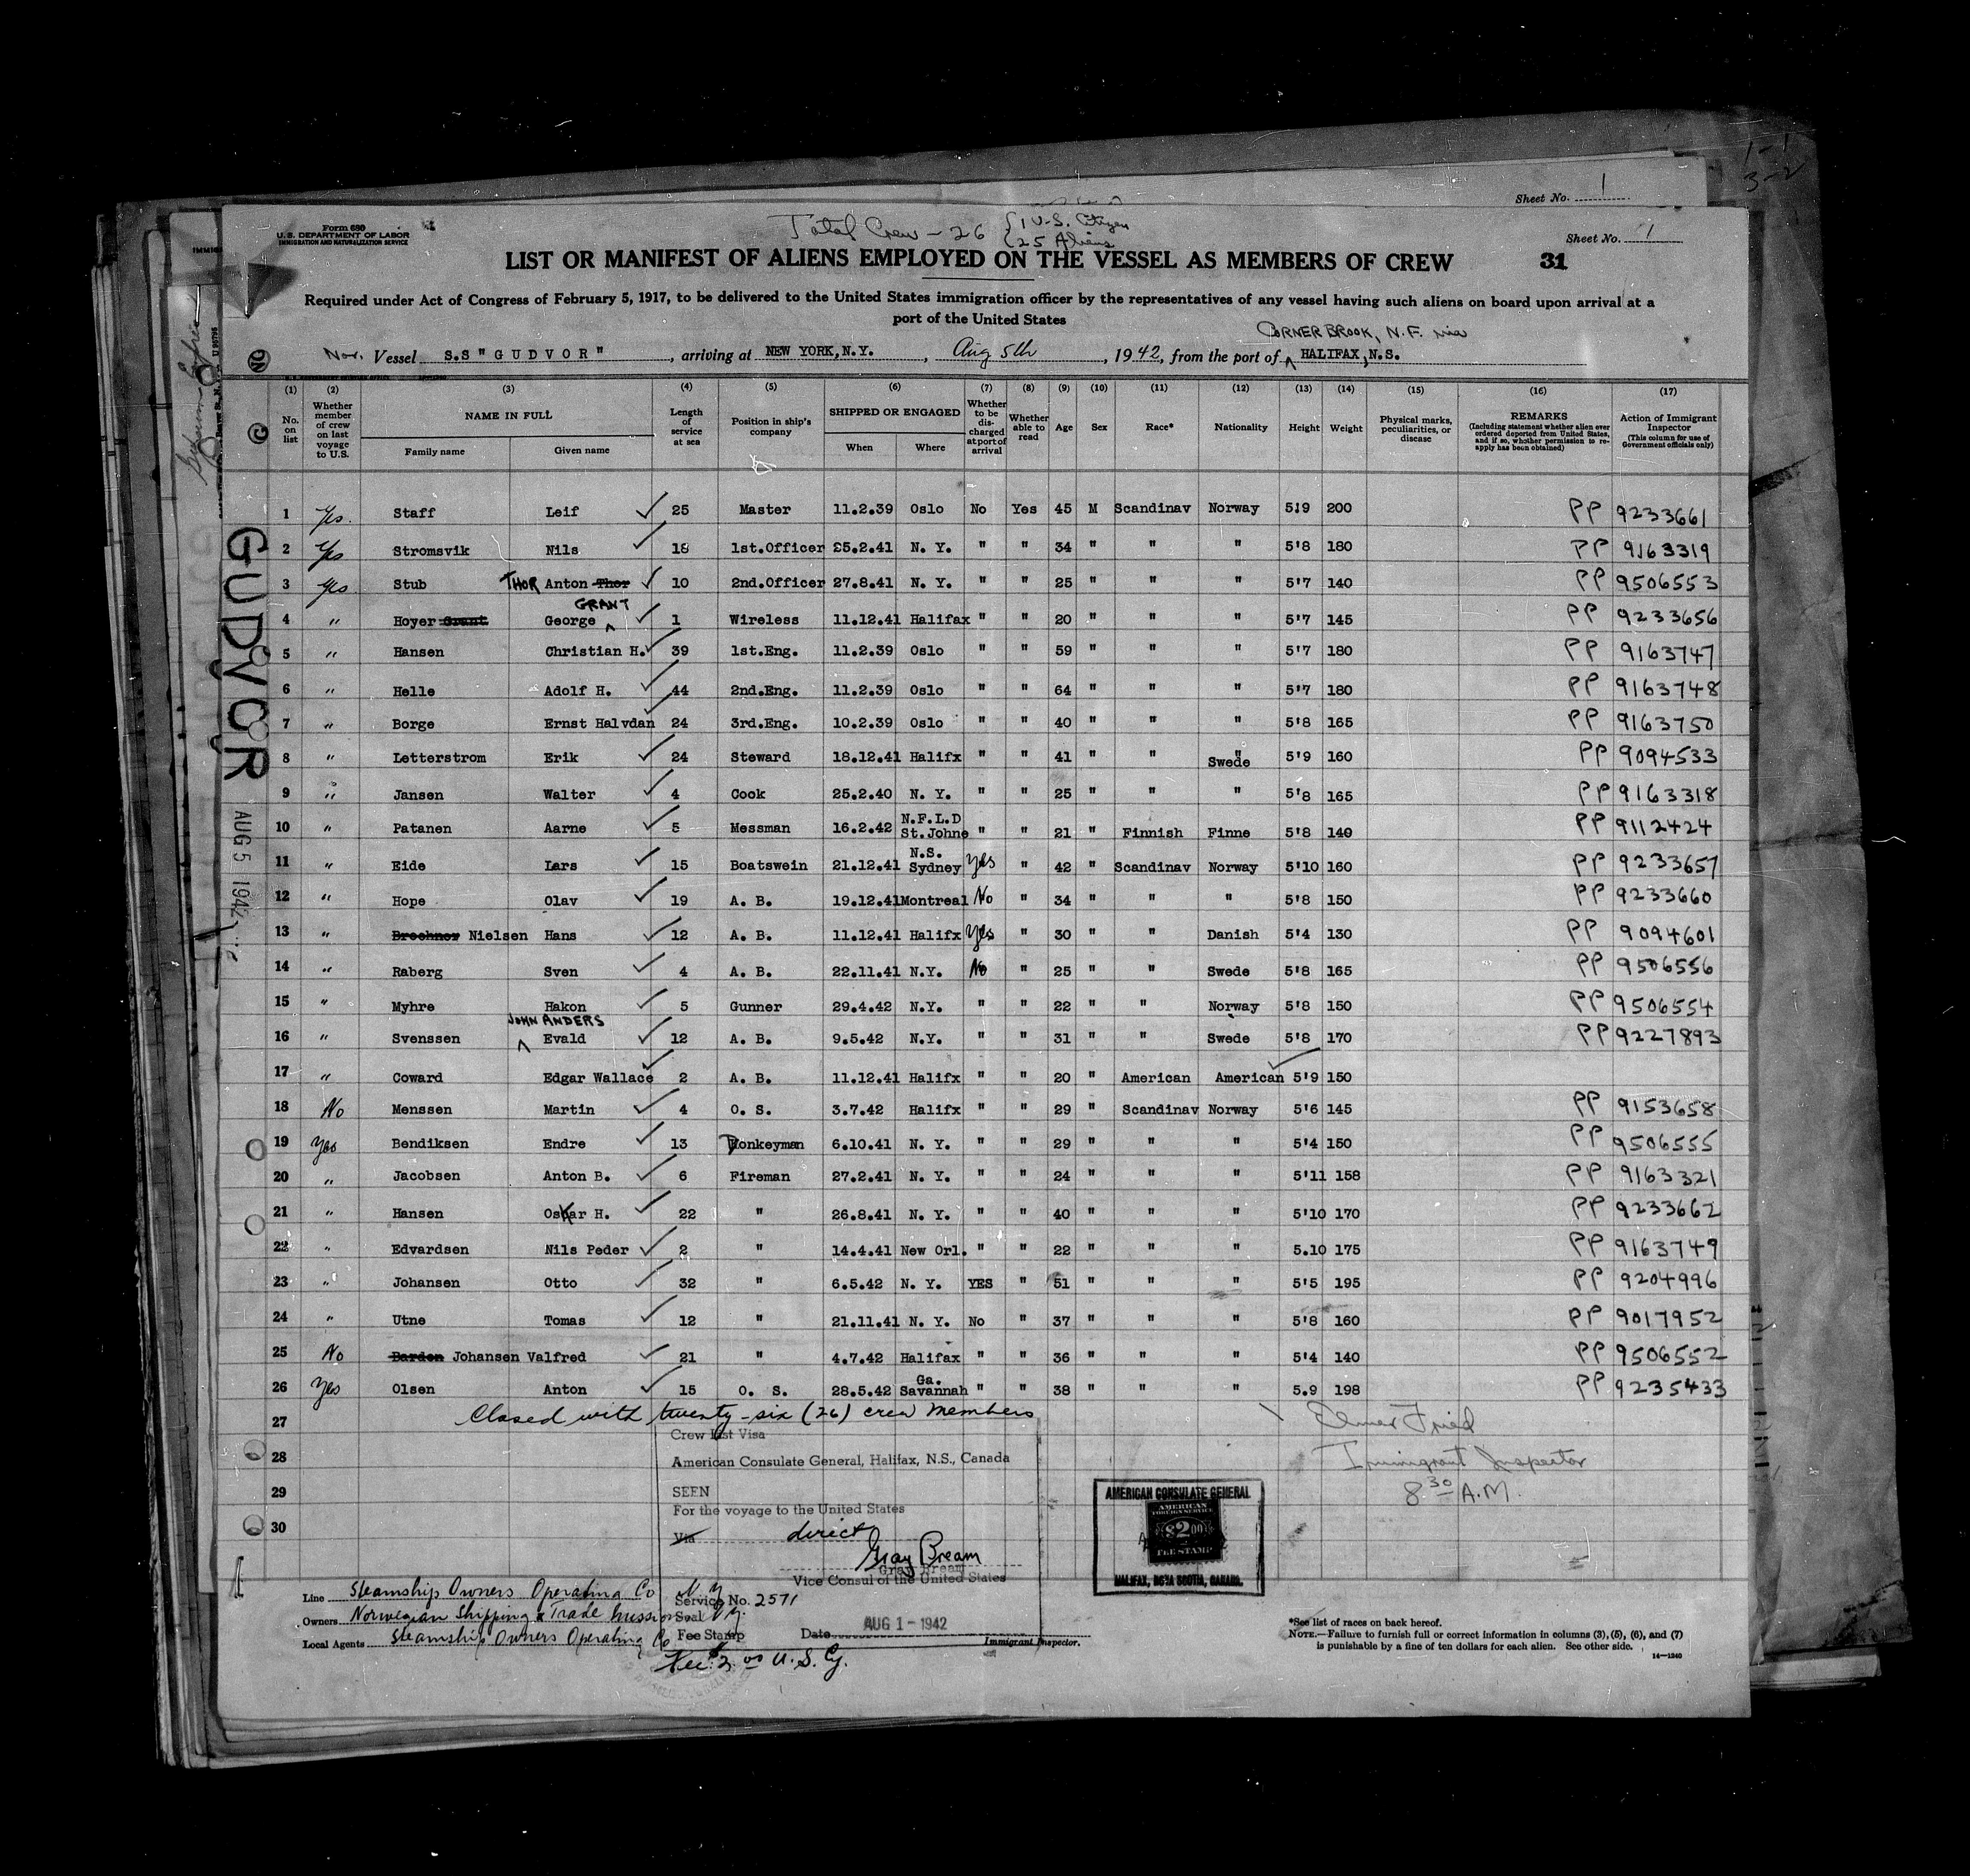 Sheet No. 1
Form 680
U. S. DEPARTMENT OF LABOR
IMMIGRATION AND NATURALIZATION SERVICE
Total Crew - 26 { 1 U.S. Citizen
{ 25 Aliens
Sheet No. 1
LIST OR MANIFEST OF ALIENS EMPLOYED ON THE VESSEL AS MEMBERS OF CREW 31
Required under Act of Congress of February 5, 1917, to be delivered to the United States immigration officer by the representatives of any vessel having such aliens on board upon arrival at a
port of the United States
CORNER BROOK, N.F. via
Nor. Vessel S.S "GUDVOR", arriving at NEW YORK, N.Y., Aug 5th, 1942, from the port of HALIFAX, N.S.
(1) (2) (3) (4) (5) (6) (7) (8) (9) (10) (11) (12) (13) (14) (15) (16) (17)
No. on list
Whether member of crew on last voyage to U.S.
NAME IN FULL
Family name Given name
Length of service at sea
Position in ship's company
SHIPPED OR ENGAGED
When Where
Whether to be discharged at port of arrival
Whether able to read
Age Sex Race* Nationality Height Weight
Physical marks, peculiarities, or disease
REMARKS
(Including statement whether alien ever ordered deported from United States, and if so, whether permission to reapply has been obtained)
Action of Immigrant Inspector
(This column for use of Government officials only)
1 Yes. Staff Leif 25 Master 11.2.39 Oslo No Yes 45 M Scandinav Norway 5'9 200 PP 9233661
2 Yes Stromsvik Nils 18 1st.Officer 25.2.41 N. Y. " " 34 " " " 5'8 180 PP 9163319
3 Yes Stub THOR Anton Thor 10 2nd.Officer 27.8.41 N. Y. " " 25 " " " 5'7 140 PP 9506553
GRANT
4 " Hoyer Grant George 1 Wireless 11.12.41 Halifax " " 20 " " " 5'7 145 PP 9233656
5 " Hansen Christian H. 39 1st.Eng. 11.2.39 Oslo " " 59 " " " 5'7 180 PP 9163747
6 " Helle Adolf H. 44 2nd.Eng. 11.2.39 Oslo " " 64 " " " 5'7 180 PP 9163748
7 " Borge Ernst Halvdan 24 3rd.Eng. 10.2.39 Oslo " " 40 " " " 5'8 165 PP 9163750
8 " Letterstrom Erik 24 Steward 18.12.41 Halifx " " 41 " " " Swede 5'9 160 PP 9094533
9 " Jansen Walter 4 Cook 25.2.40 N. Y. " " 25 " " " 5'8 165 PP 9163318
10 " Patanen Aarne 5 Messman 16.2.42 N.F.L.D St.Johns " " 21 " Finnish Finne 5'8 140 PP 9112424
11 " Eide Lars 15 Boatswein 21.12.41 N.S. Sydney Yes " 42 " Scandinav Norway 5'10 160 PP 9233657
12 " Hope Olav 19 A. B. 19.12.41 Montreal No " 34 " " " 5'8 150 PP 9233660
13 " Brochner Nielsen Hans 12 A. B. 11.12.41 Halifx Yes " 30 " " Danish 5'4 130 PP 9094601
14 " Raberg Sven 4 A. B. 22.11.41 N.Y. No " 25 " " Swede 5'8 165 PP 9506556
15 " Myhre Hakon 5 Gunner 29.4.42 N.Y. " " 22 " " Norway 5'8 150 PP 9506554
JOHN ANDERS
16 " Svenssen Evald 12 A. B. 9.5.42 N.Y. " " 31 " " Swede 5'8 170 PP 9227893
17 " Coward Edgar Wallace 2 A. B. 11.12.41 Halifx " " 20 " American American 5'9 150
18 No Menssen Martin 4 O. S. 3.7.42 Halifx " " 29 " Scandinav Norway 5'6 145 PP 9153658
19 Yes Bendiksen Endre 13 Donkeyman 6.10.41 N. Y. " " 29 " " " 5'4 150 PP 9506555
20 " Jacobsen Anton B. 6 Fireman 27.2.41 N. Y. " " 24 " " " 5'11 158 PP 9163321
21 " Hansen Oskar H. 22 " 26.8.41 N. Y. " " 40 " " " 5'10 170 PP 9233662
22 " Edvardsen Nils Peder 2 " 14.4.41 New Orl. " " 22 " " " 5.10 175 PP 9163749
23 " Johansen Otto 32 " 6.5.42 N. Y. YES " 51 " " " 5'5 195 PP 9204996
24 " Utne Tomas 12 " 21.11.41 N. Y. No " 37 " " " 5'8 160 PP 9017952
25 No Barden Johansen Valfred 21 " 4.7.42 Halifax " " 36 " " " 5'4 140 PP 9506552
26 Yes Olsen Anton 15 O. S. 28.5.42 Ga. Savannah " " 38 " " " 5.9 198 PP 9235433
27 Closed with twenty-six (26) crew members
Elmer Fried
Crew List Visa
28 American Consulate General, Halifax, N.S., Canada
Immigrant Inspector
29 SEEN
8 30 A.M.
For the voyage to the United States
30 Via direct
Gray Bream
Gray Bream
Vice Consul of the United States
AMERICAN CONSULATE GENERAL
AMERICAN
FOREIGN SERVICE
$2.00
FEE STAMP
HALIFAX, NOVA SCOTIA, CANADA.
Line Steamship Owners Operating Co N.Y.
Service No. 2571
Owners Norwegian Shipping & Trade Mission N.Y.
Seal
Local Agents Steamship Owners Operating Co
Fee Stamp Date AUG 1 - 1942
Immigrant Inspector.
Fee: $2.00 U.S. Cy.
*See list of races on back hereof.
NOTE.—Failure to furnish full or correct information in columns (3), (5), (6), and (7)
is punishable by a fine of ten dollars for each alien. See other side.
14—1240
GUDVOR
AUG 5 1942